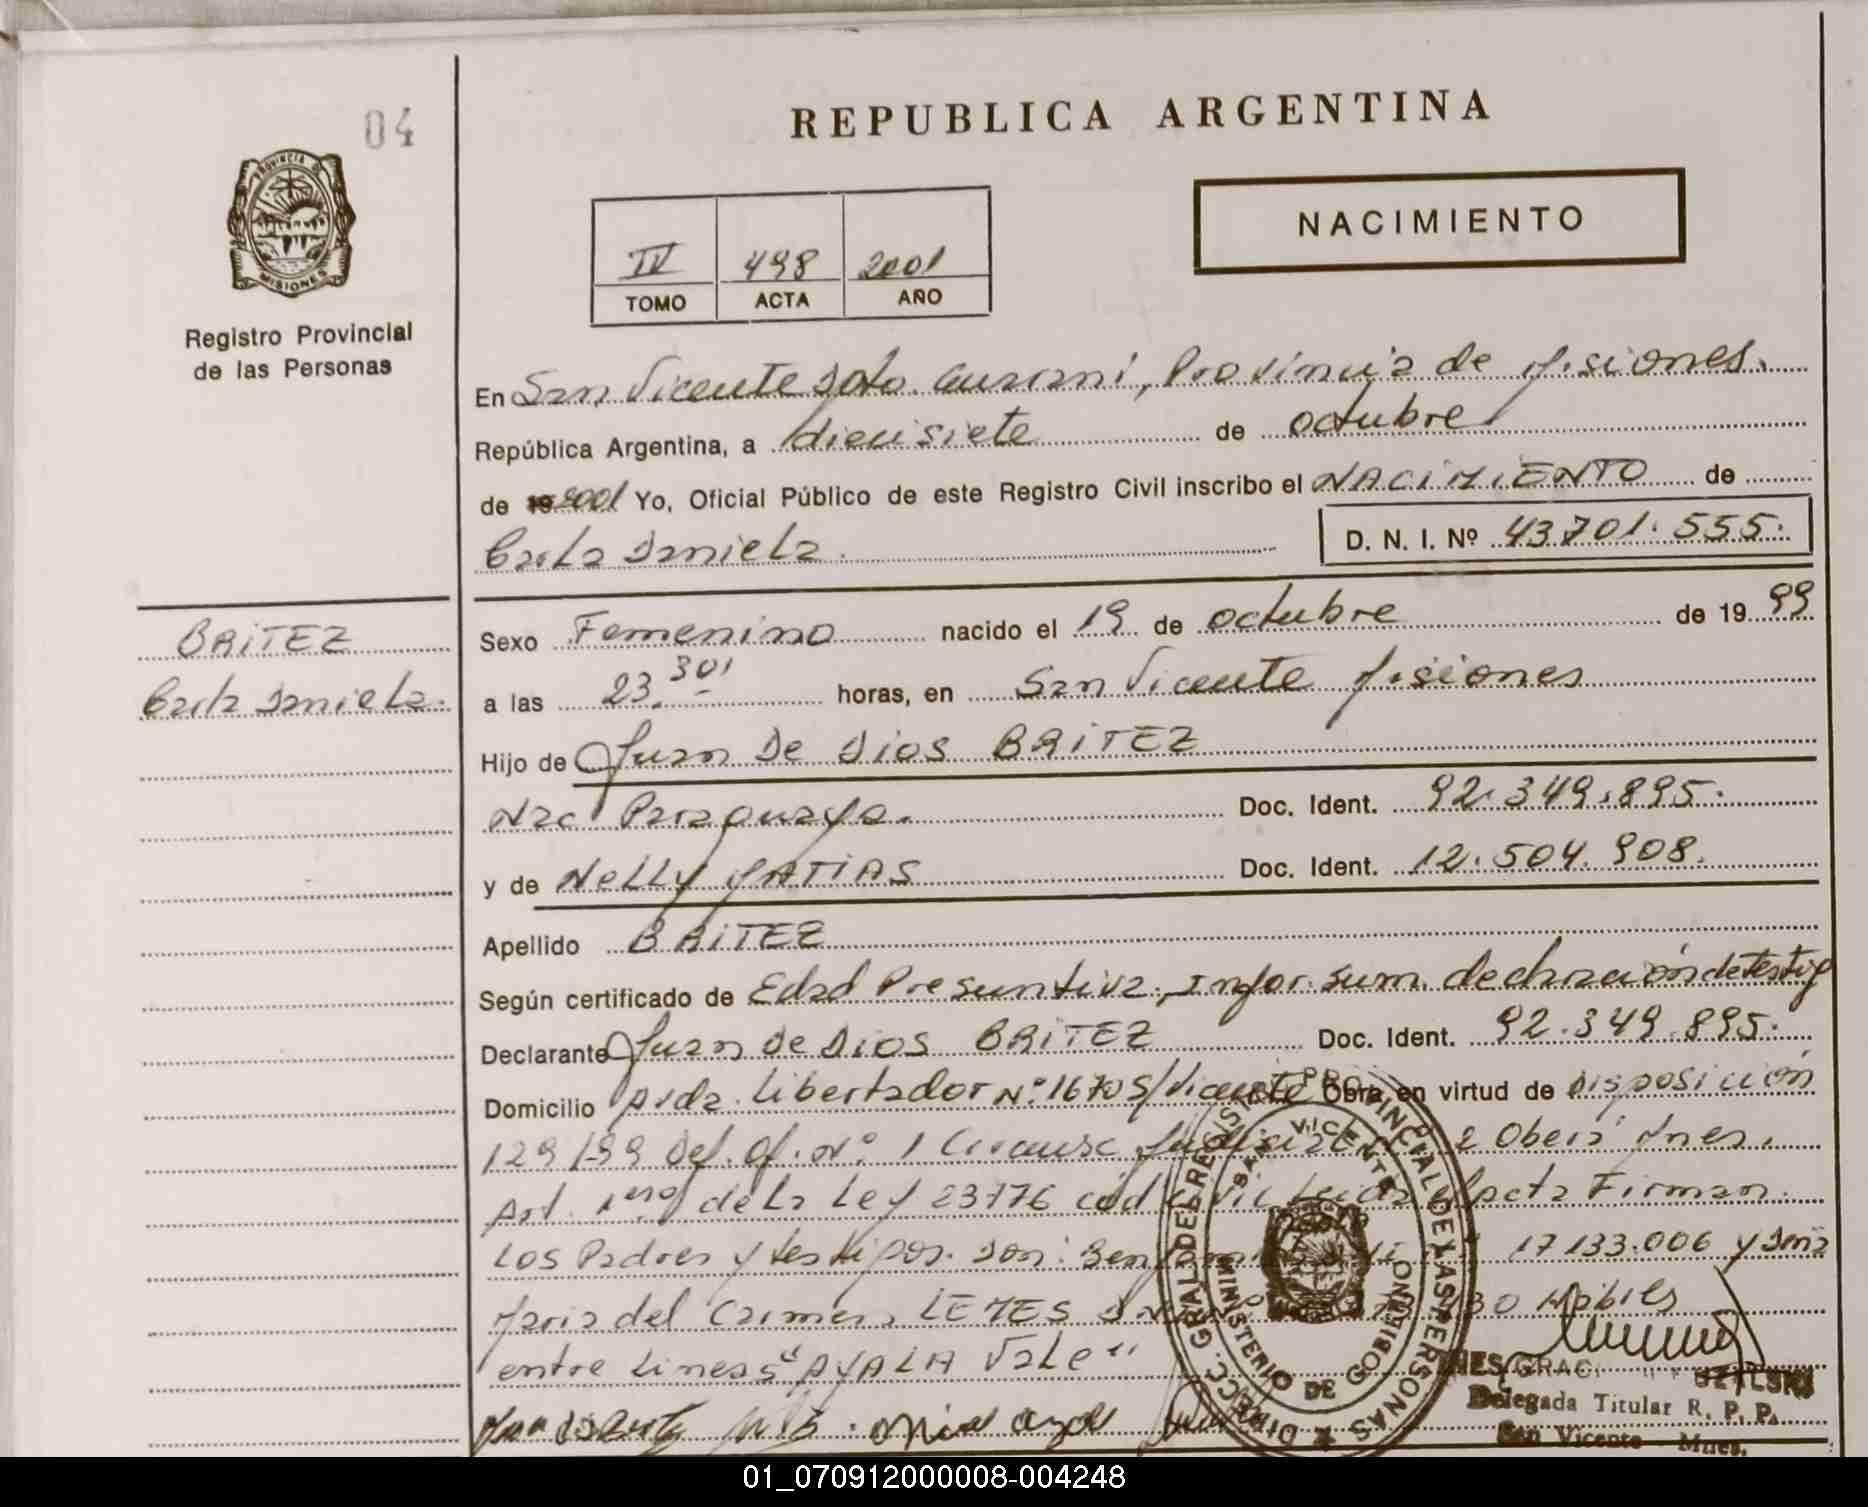 04
REPUBLICA ARGENTINA
PROVINCIA DE MISIONES
Registro Provincial
de las Personas
NACIMIENTO
IV 498 2001
TOMO ACTA AÑO
En San Vicente Dpto. Guarani, Provincia de Misiones.
República Argentina, a diecisiete de octubre
de 2001 Yo, Oficial Público de este Registro Civil inscribo el NACIMIENTO de
Carla Daniela.
D. N. I. Nº 43.701.555.
BRITEZ
Carla Daniela.
Sexo Femenino nacido el 19 de octubre de 19 99
a las 23.30' horas, en San Vicente Misiones
Hijo de Juan De Dios BRITEZ
Nac Paraguaya. Doc. Ident. 92.349.895.
y de Nelly MATIAS Doc. Ident. 12.504.908.
Apellido BRITEZ
Según certificado de Edad Presuntiva, Infor. sum. declaración de testig
Declarante Juan De Dios BRITEZ Doc. Ident. 92.349.895.
Domicilio Avda. Libertador Nº 1670 S/Vicente Obra en virtud de Disposición
129/99 Def. Of. Nº 1 Circunsc Obera Mnes.
Art. 1ero de la Ley 23776 Acta Firman
Los Padres y testigos. Don: 17133.006 y Doña
Maria del Carmen LEMES Habiles
entre Lineas "AYALA Vale"
DIRECC. GRAL DE REGISTRO PROVINCIAL DE LAS PERSONAS
SAN VICENTE
MINISTERIO DE GOBIERNO
INES GRAC
Delegada Titular R. P. P.
San Vicente - Mnes.
01_070912000008-004248